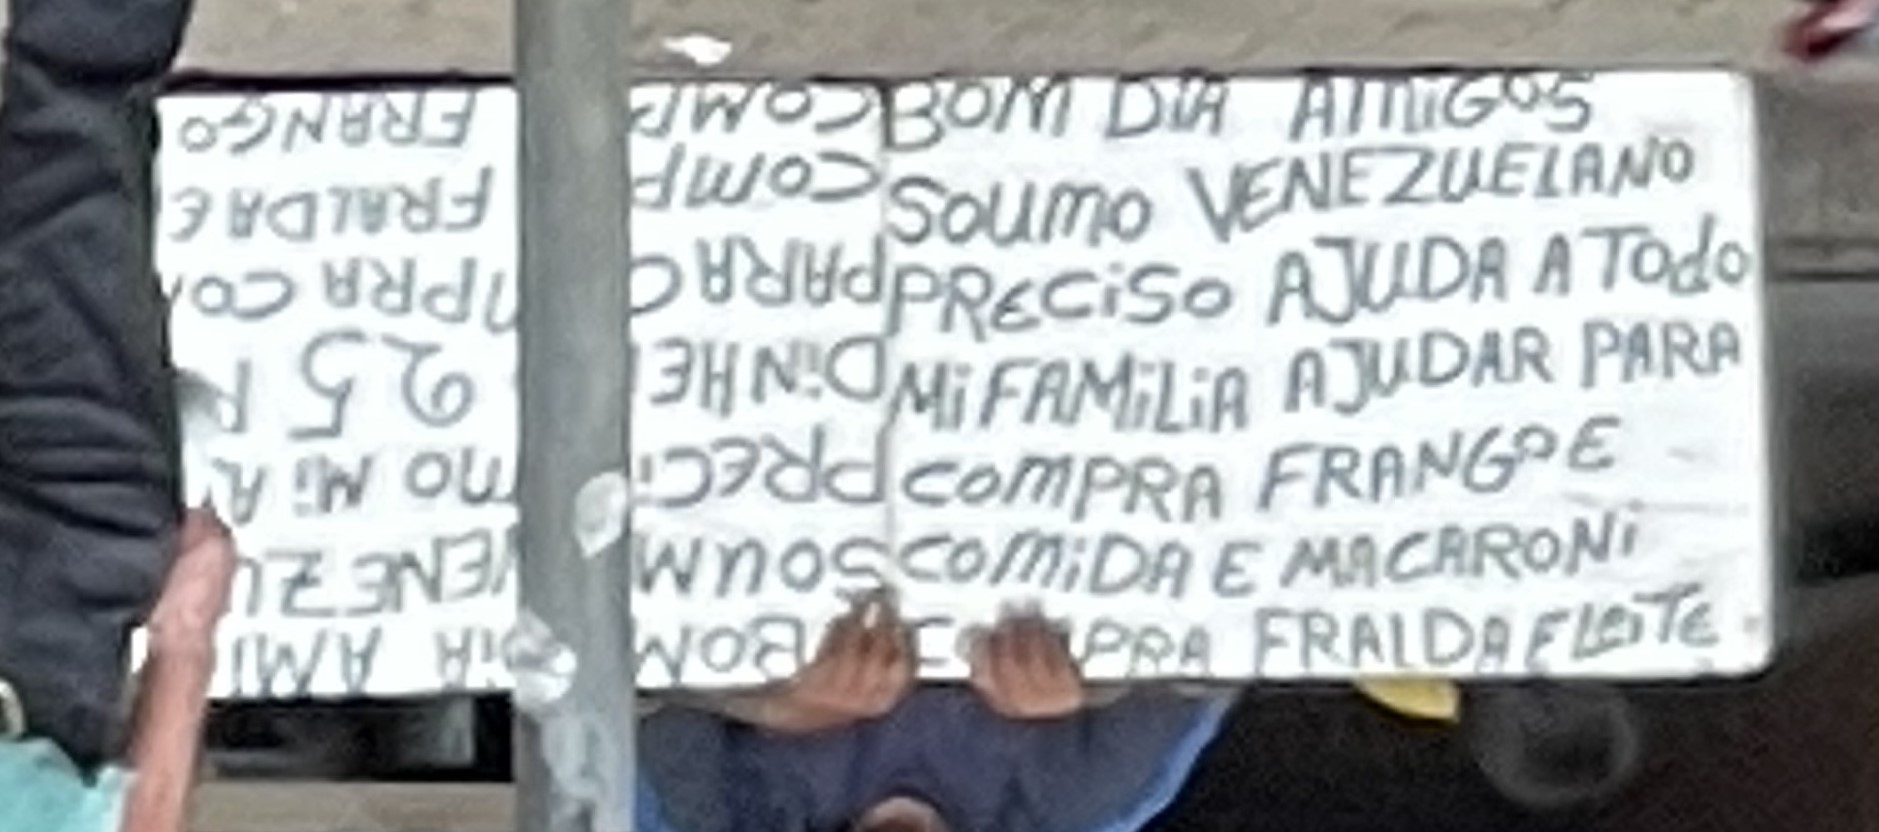 BOM DIA AMIGOS
SOUMO VENEZUELANO
PRECISO AJUDA A TODO
MI FAMILIA AJUDAR PARA
COMPRA FRANGO E
COMIDA E MACARONI
COMPRA FRALDA E LEITE
BOM DIA AMI
SOUM VENEZU
PRECI MO MI A
DINHE 25 R
PARA C MPRA CO
COMP FRALDA E
COMP FRANGO